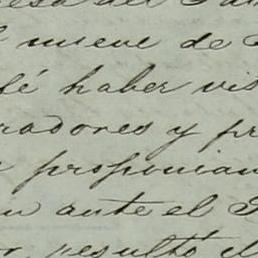 del
nueve de
fé haber vis
radores y pr
proponian
ante el
resultó el